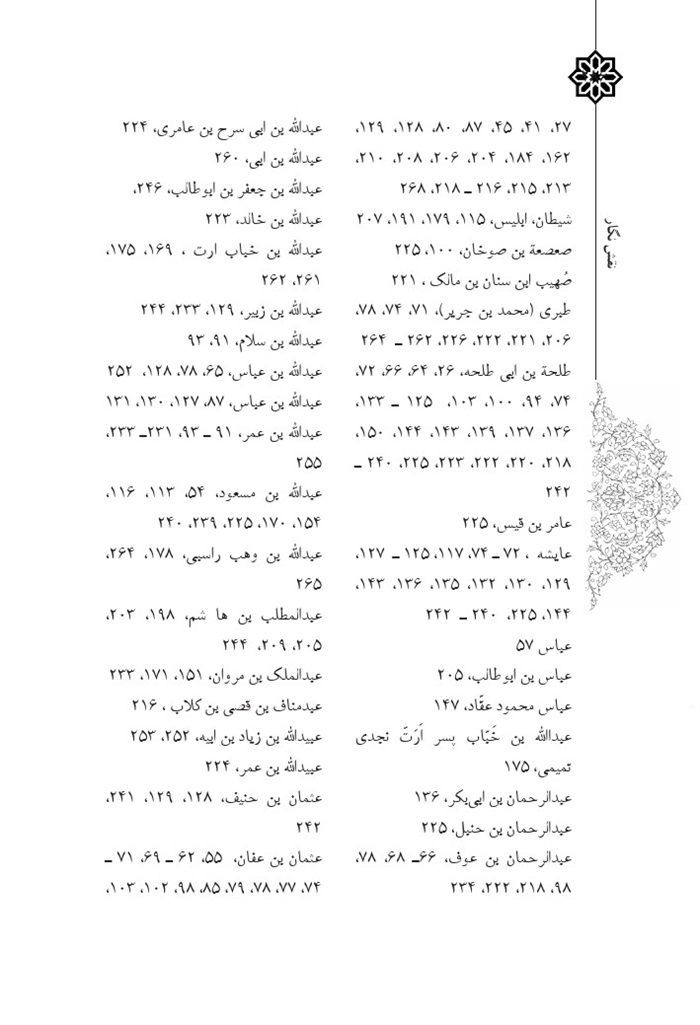 نقش نگار
۲۷، ۴۱، ۴۵، ۸۷، ۸۰، ۱۲۸، ۱۲۹،
۱۶۲، ۱۸۴، ۲۰۴، ۲۰۶، ۲۰۸، ۲۱۰،
۲۱۳، ۲۱۵، ۲۱۶ ـ ۲۱۸، ۲۶۸
شیطان، ابلیس، ۱۱۵، ۱۷۹، ۱۹۱، ۲۰۷
صعصعة بن صوخان، ۱۰۰، ۲۲۵
صُهیب ابن سنان بن مالک ، ۲۲۱
طبری (محمد بن جریر)، ۷۱، ۷۴، ۷۸،
۲۰۶، ۲۲۱، ۲۲۲، ۲۲۶، ۲۶۲ ـ ۲۶۴
طلحة بن ابی طلحه، ۲۶، ۶۴، ۶۶، ۷۲،
۷۴، ۹۴، ۱۰۰، ۱۰۳، ۱۲۵ ـ ۱۳۳،
۱۳۶، ۱۳۷، ۱۳۹، ۱۴۳، ۱۴۴، ۱۵۰،
۲۱۸، ۲۲۰، ۲۲۲، ۲۲۳، ۲۲۵، ۲۴۰ ـ
۲۴۲
عامر بن قیس، ۲۲۵
عایشه ، ۷۲ ـ ۷۴، ۱۱۷، ۱۲۵ ـ ۱۲۷،
۱۲۹، ۱۳۰، ۱۳۲، ۱۳۵، ۱۳۶، ۱۴۳،
۱۴۴، ۲۲۵، ۲۴۰ ـ ۲۴۲
عباس ۵۷
عباس بن ابوطالب، ۲۰۵
عباس محمود عقّاد، ۱۴۷
عبداالله بن خَبّاب پسر اَرَتّ نجدی
تمیمی، ۱۷۵
عبدالرحمان بن ابی‌بکر، ۱۳۶
عبدالرحمان بن حنبل، ۲۲۵
عبدالرحمان بن عوف، ۶۶ـ ۶۸، ۷۸،
۹۸، ۲۱۸، ۲۲۲، ۲۳۴
عبدالله بن ابی سرح بن عامری، ۲۲۴
عبدالله بن ابی، ۲۶۰
عبدالله بن جعفر بن ابوطالب، ۲۴۶،
عبدالله بن خالد، ۲۲۳
عبدالله بن خباب ارت ، ۱۶۹، ۱۷۵،
۲۶۱، ۲۶۲
عبدالله بن زبیر، ۱۲۹، ۲۳۳، ۲۴۴
عبدالله بن سلام، ۹۱، ۹۳
عبدالله بن عباس، ۶۵، ۷۸، ۱۲۸، ۲۵۲
عبدالله بن عباس، ۸۷، ۱۲۷، ۱۳۰، ۱۳۱
عبدالله بن عمر، ۹۱ ـ ۹۳، ۲۳۱ـ ۲۳۳،
۲۵۵
عبدالله بن مسعود، ۵۴، ۱۱۳، ۱۱۶،
۱۵۴، ۱۷۰، ۲۲۵، ۲۳۹، ۲۴۰
عبدالله بن وهب راسبی، ۱۷۸، ۲۶۴،
۲۶۵
عبدالمطلب بن ها شم، ۱۹۸، ۲۰۳،
۲۰۵، ۲۰۹، ۲۴۴
عبدالملک بن مروان، ۱۵۱، ۱۷۱، ۲۳۳
عبدمناف بن قصی بن کلاب ، ۲۱۶
عبیدالله بن زیاد بن ابیه، ۲۵۲، ۲۵۳
عبیدالله بن عمر، ۲۲۴
عثمان بن حنیف، ۱۲۸، ۱۲۹، ۲۴۱،
۲۴۲
عثمان بن عفان، ۵۵، ۶۲ ـ ۶۹، ۷۱ ـ
۷۴، ۷۷، ۷۸، ۷۹، ۸۵، ۹۸، ۱۰۲، ۱۰۳،